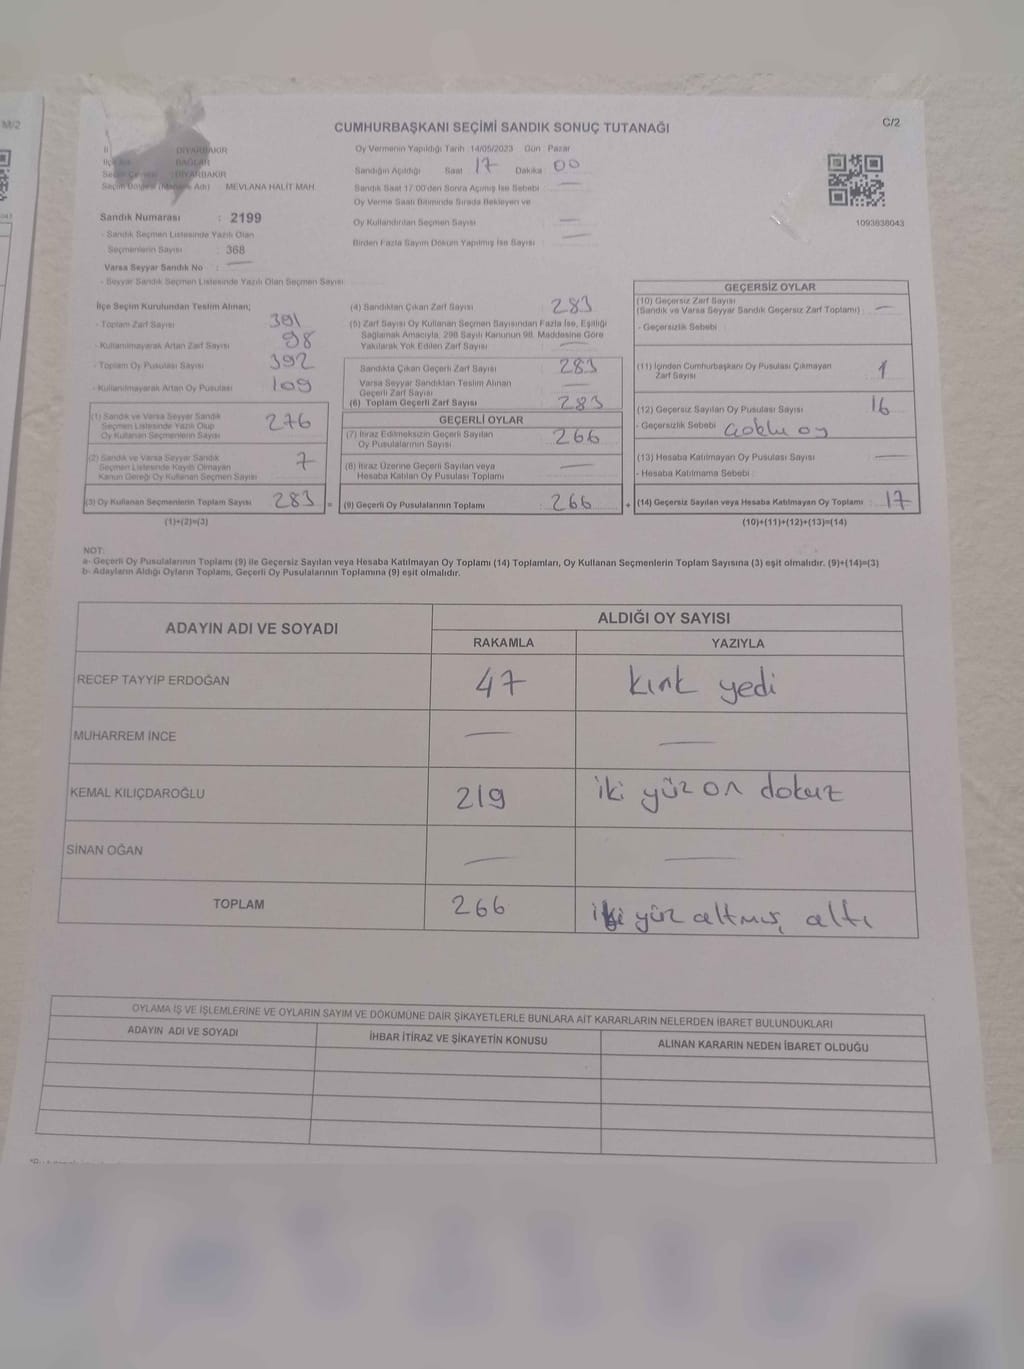 M/2
C/2
CUMHURBAŞKANI SEÇİMİ SANDIK SONUÇ TUTANAĞI
İl DİYARBAKIR
BAĞLAR
DİYARBAKIR
MEVLANA HALİT MAH.
Oy Vermenin Yapıldığı Tarih :14/05/2023 Gün : Pazar
Sandığın Açıldığı Saat 17 Dakika 00
Sandık Saat 17:00'den Sonra Açılmış İse Sebebi :
Oy Verme Saati Bitiminde Sırada Bekleyen ve
Oy Kullandırılan Seçmen Sayısı
Birden Fazla Sayım Döküm Yapılmış İse Sayısı
1093838043
Sandık Numarası : 2199
- Sandık Seçmen Listesinde Yazılı Olan
Seçmenlerin Sayısı : 368
Varsa Seyyar Sandık No :
- Seyyar Sandık Seçmen Listesinde Yazılı Olan Seçmen Sayısı
İlçe Seçim Kurulundan Teslim Alınan;
- Toplam Zarf Sayısı 381
- Kullanılmayarak Artan Zarf Sayısı 98
- Toplam Oy Pusulası Sayısı 392
- Kullanılmayarak Artan Oy Pusulası 109
(1) Sandık ve Varsa Seyyar Sandık
Seçmen Listesinde Yazılı Olup
Oy Kullanan Seçmenlerin Sayısı 276
(2) Sandık ve Varsa Seyyar Sandık
Seçmen Listesinde Kayıtlı Olmayan
Kanun Gereği Oy Kullanan Seçmen Sayısı 7
(3) Oy Kullanan Seçmenlerin Toplam Sayısı 283 =
(1)+(2)=(3)
(4) Sandıktan Çıkan Zarf Sayısı 283
(5) Zarf Sayısı Oy Kullanan Seçmen Sayısından Fazla İse, Eşitliği
Sağlamak Amacıyla, 298 Sayılı Kanunun 98. Maddesine Göre
Yakılarak Yok Edilen Zarf Sayısı
Sandıkta Çıkan Geçerli Zarf Sayısı 283
Varsa Seyyar Sandıktan Teslim Alınan
Geçerli Zarf Sayısı
(6) Toplam Geçerli Zarf Sayısı 283
GEÇERLİ OYLAR
(7) İtiraz Edilmeksizin Geçerli Sayılan
Oy Pusulalarının Sayısı 266
(8) İtiraz Üzerine Geçerli Sayılan veya
Hesaba Katılan Oy Pusulası Toplamı
(9) Geçerli Oy Pusulalarının Toplamı 266 +
GEÇERSİZ OYLAR
(10) Geçersiz Zarf Sayısı
(Sandık ve Varsa Seyyar Sandık Geçersiz Zarf Toplamı) :
- Geçersizlik Sebebi :
(11) İçinden Cumhurbaşkanı Oy Pusulası Çıkmayan
Zarf Sayısı 1
(12) Geçersiz Sayılan Oy Pusulası Sayısı 16
- Geçersizlik Sebebi çoklu oy
(13) Hesaba Katılmayan Oy Pusulası Sayısı
- Hesaba Katılmama Sebebi :
(14) Geçersiz Sayılan veya Hesaba Katılmayan Oy Toplamı : 17
(10)+(11)+(12)+(13)=(14)
NOT:
a- Geçerli Oy Pusulalarının Toplamı (9) ile Geçersiz Sayılan veya Hesaba Katılmayan Oy Toplamı (14) Toplamları, Oy Kullanan Seçmenlerin Toplam Sayısına (3) eşit olmalıdır. (9)+(14)=(3)
b- Adayların Aldığı Oyların Toplamı, Geçerli Oy Pusulalarının Toplamına (9) eşit olmalıdır.
ADAYIN ADI VE SOYADI
ALDIĞI OY SAYISI
RAKAMLA YAZIYLA
RECEP TAYYİP ERDOĞAN 47 kırk yedi
MUHARREM İNCE
KEMAL KILIÇDAROĞLU 219 iki yüz on dokuz
SİNAN OĞAN
TOPLAM 266 iki yüz altmış altı
OYLAMA İŞ VE İŞLEMLERİNE VE OYLARIN SAYIM VE DÖKÜMÜNE DAİR ŞİKAYETLERLE BUNLARA AİT KARARLARIN NELERDEN İBARET BULUNDUKLARI
ADAYIN ADI VE SOYADI İHBAR İTİRAZ VE ŞİKAYETİN KONUSU ALINAN KARARIN NEDEN İBARET OLDUĞU